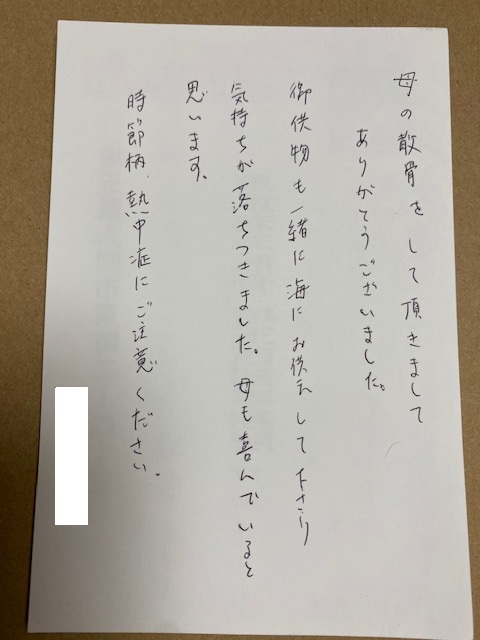 母の散骨をして頂きまして
ありがとうございました。
御供物も一緒に海にお供えして下さり
気持ちが落ちつきました。母も喜んでいると
思います。
時節柄、熱中症にご注意ください。